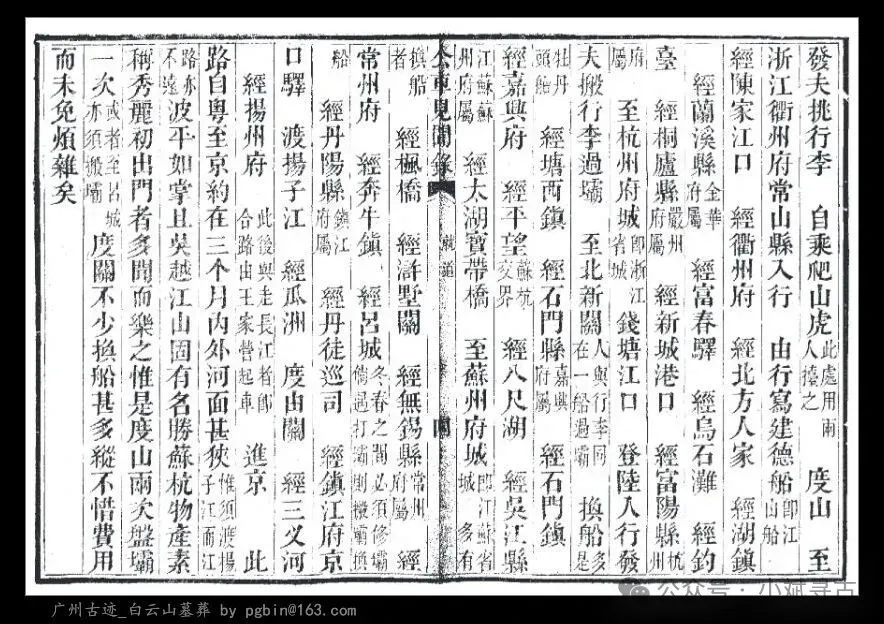 發夫挑行李　自乘爬山虎此處用兩人擡之　度山　至
浙江衢州府常山縣入行　由行寫建德船即江山船
經陳家江口　經衢州府　經北方人家　經湖鎮
經蘭溪縣金華府屬　經富春驛　經烏石灘　經釣
臺　經桐廬縣嚴州府屬　經新城港口　經富陽縣杭州
府屬　至杭州府城即浙江省城　錢塘江口　登陸入行發
夫搬行李過壩　至北新關人與行李同在一船過壩　換船多是
牡丹頭船　經塘西鎮　經石門縣嘉興府屬　經石門鎮
經嘉興府　經平望蘇杭交界　經八尺湖　經吳江縣
江蘇蘇州府屬　經太湖寶帶橋　至蘇州府城即江蘇省城多有
公車見聞錄　四
換船者　經楓橋　經滸墅關　經無錫縣常州府屬　經
常州府　經奔牛鎮　經呂城冬春之間必須修壩倘過打壩則搬壩換
船　經丹陽縣鎮江府屬　經丹徒巡司　經鎮江府京
口驛　渡揚子江　經瓜洲　度由關　經三义河
經揚州府此後與走長江者卽合路由王家營起車　進京　此
路自粵至京約在三个月內外河面甚狹惟須渡揚子江而江
路亦不遠波平如掌且吳越江山固有名勝蘇杭物產素
稱秀麗初出門者多聞而樂之惟是度山兩次盤壩
一次或者至呂城亦須搬壩度關不少換船甚多縱不惜費用
而未免煩雜矣
公众号：小斌寻古
广州古迹_白云山墓葬 by pgbin@163.com